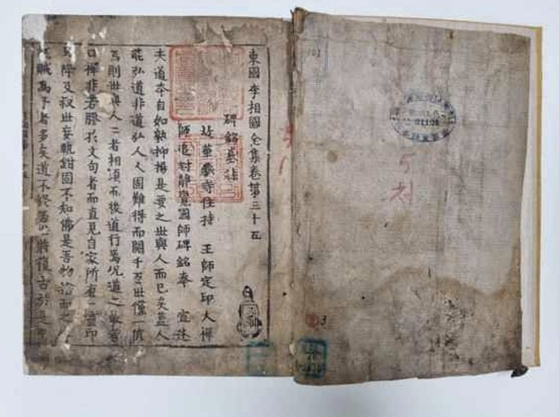 東國李相國全集卷第三十五
碑銘墓誌
故華藏寺住持 王師定印大禪
師追封靜覺國師碑銘奉 宣述
夫道本自如孰抑揚是要之世與人而已矣蓋人
能弘道非道弘人人固難得而閒千百世僅一値
焉則世與人二者相須而後道行焉況道之最者
曰禪非若膠於文句者而直見自家所有心印
降及叔世妄執紺固不知佛是吾物
賊焉者多矣道不終否必將復古於是
5
3